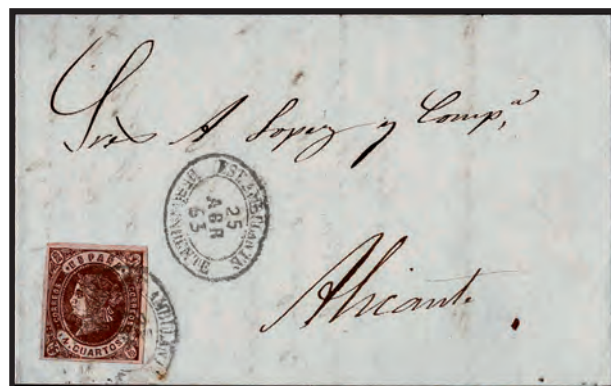 Sres A Lopez y Comp.ª
EST. AMBULANTE
25
ABR
63
Alicante
ESPAÑA
CORREOS
4. CUARTOS